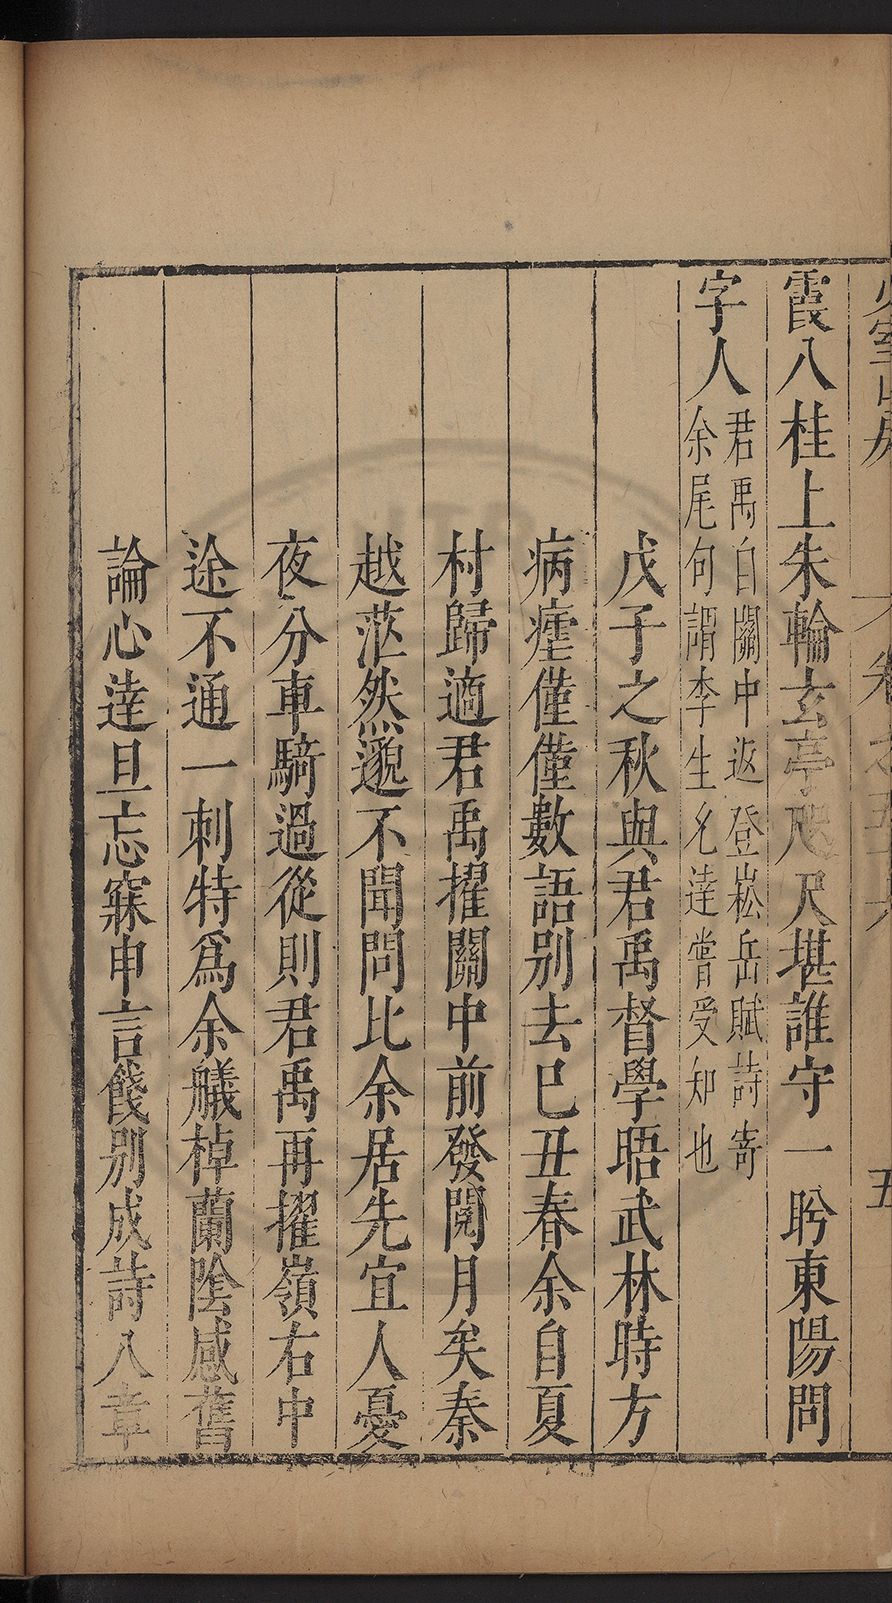 霞八桂上朱輪玄亭咫尺堪誰守一盻東陽問
字人
君禹自關中返登崧岳賦詩寄
余尾句謂李生允達嘗受知也
戊子之秋與君禹督學晤武林時方
病瘧僅僅數語别去巳丑春余自夏
村歸適君禹擢關中前發閱月矣秦
越茫然邈不聞問比余居先宜人憂
夜分車騎過從則君禹再擢嶺右中
途不通一刺特爲余艤棹蘭陰感舊
論心達旦忘寐申言餞别成詩八章